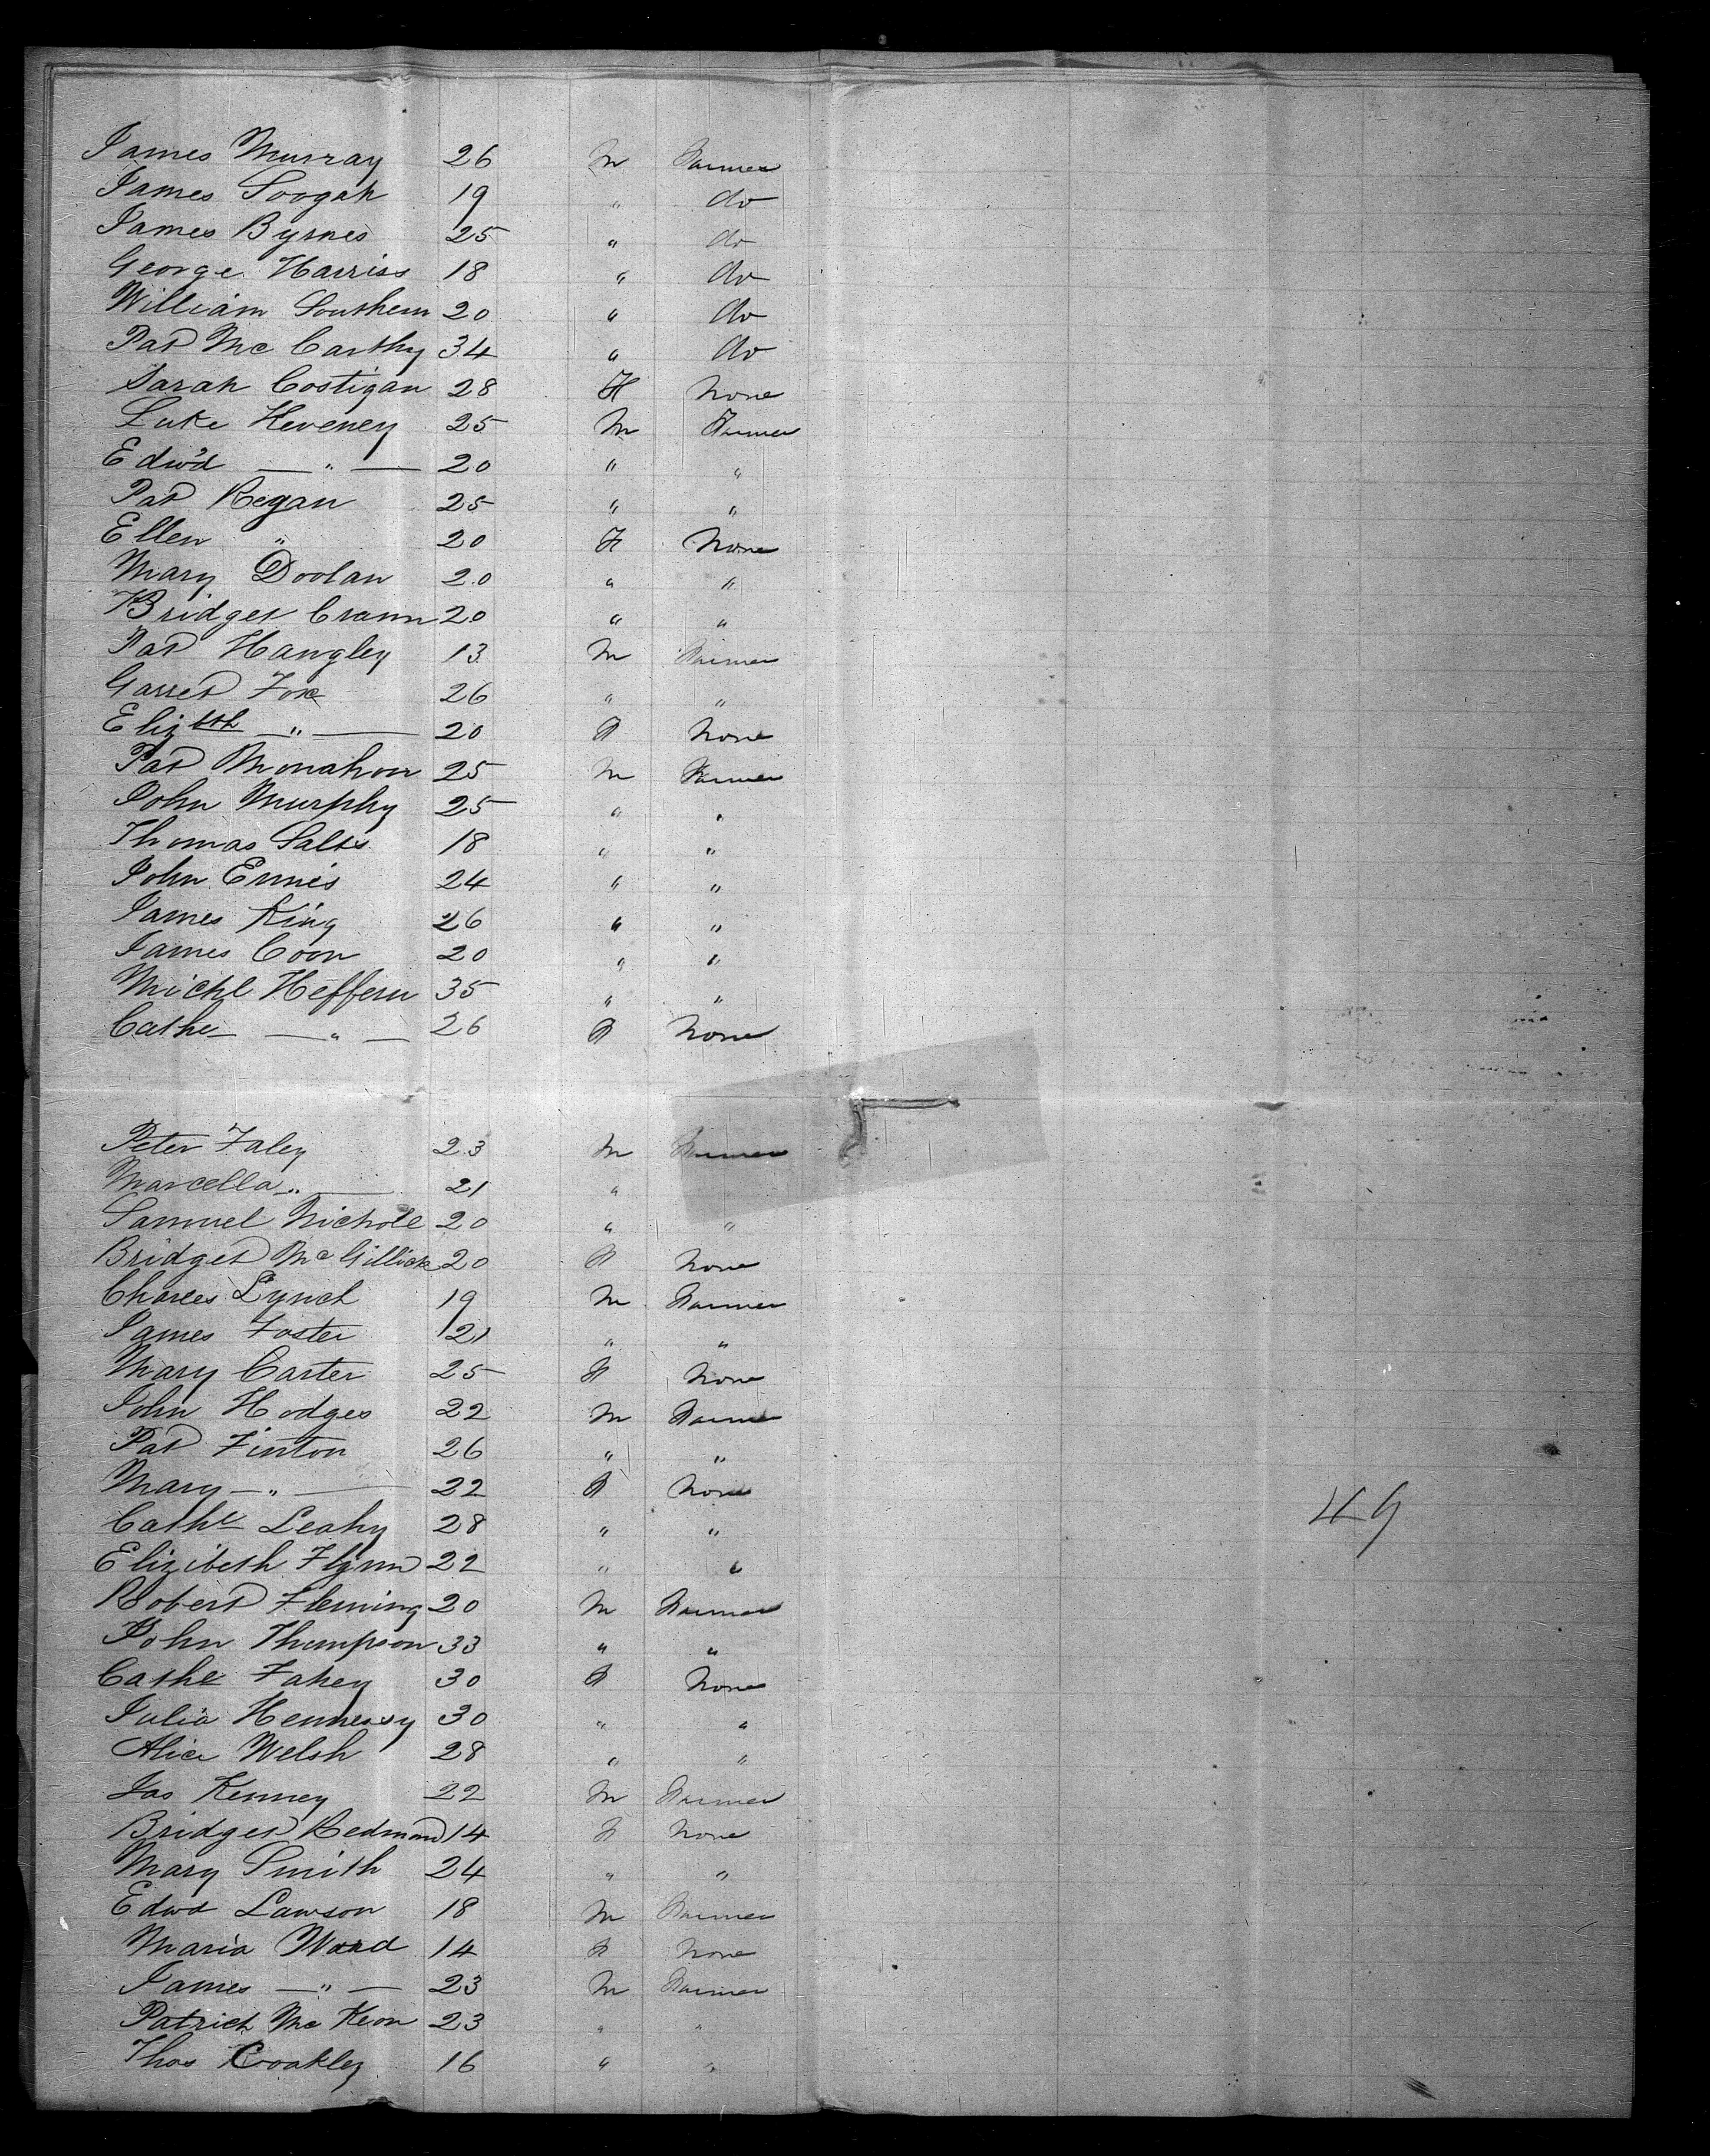 James Murray 26 M Farmer
James Googah 19 " do
James Byrnes 25 " do
George Harriss 18 " do
William Southern 20 " do
Pat Mc Carthy 34 " do
Sarah Costigan 28 F None
Luke Heveney 25 M Farmer
Edw'd — " — 20 " "
Pat Regan 25 " "
Ellen " 20 F None
Mary Doolan 20 " "
Bridget Crann 20 " "
Pat Hangley 13 M Farmer
Garret Fox 26 " "
Elizbth — " — 20 F None
Pat Monahon 25 M Farmer
John Murphy 25 " "
Thomas Salts 18 " "
John Ennis 24 " "
James King 26 " "
James Coon 20 " "
Michl Heffern 35 " "
Cathe — " — 26 F None
Peter Faley 23 M Farmer
Marcella " — 21 "
Samuel Nicholl 20 " "
Bridget McGillick 20 F None
Charles Lynch 19 M Farmer
James Foster 21 " "
Mary Carter 25 F None
John Hodges 22 M Farmer
Pat Finton 26 " "
Mary — " — 22 F None
Cathe Leahy 28 " "
Elizibeth Flynn 22 " "
Robert Fleming 20 M Farmer
John Thompson 33 " "
Cathe Fahey 30 F None
Julia Hennessy 30 " "
Alice Welsh 28 " "
Jas Kenney 22 M Farmer
Bridget Redmond 14 F None
Mary Smith 24 " "
Edwd Lawson 18 M Farmer
Maria Ward 14 F None
James — " — 23 M Farmer
Patrick Mc Keon 23 " "
Thos Coakley 16 " "
49